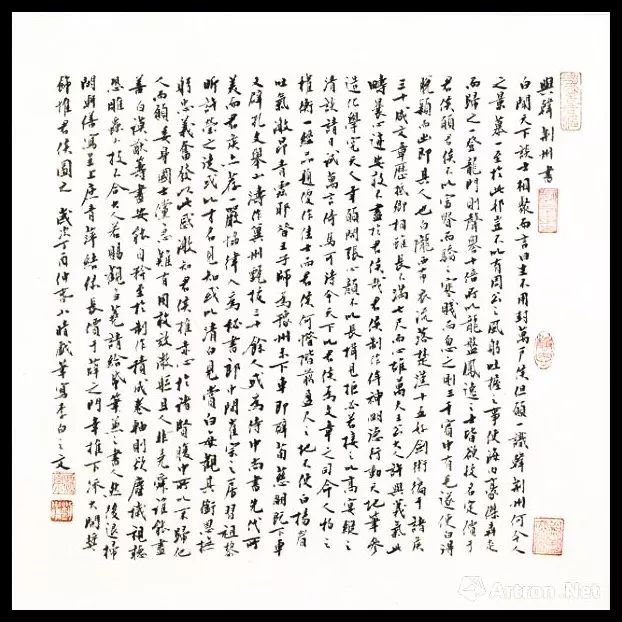 與韓荆州書
白聞天下談士相聚而言曰生不用封萬户侯但願一識韓荆州何令人
之景慕一至於此耶豈不以有周公之風躬吐握之事使海内豪傑奔走
而歸之一登龍門則聲譽十倍所以龍盤鳳逸之士皆欲收名定價于
君侯願君侯不以富貴而驕之寒賤而忽之則三千賓中有毛遂使白得
脱穎而出即其人也白隴西布衣流落楚漢十五好劍術徧干諸侯
三十成文章歷抵卿相雖長不滿七尺而心雄萬夫王公大人許與義氣此
疇曩心迹安敢不盡於君侯哉君侯制作侔神明德行動天地筆參
造化學究天人幸願開張心顔不以長揖見拒必若接之以高宴縱之
清談請日試萬言倚馬可待今天下以君侯為文章之司命人物之
權衡一經品題便作佳士而君侯何惜階前盈尺之地不使白揚眉
吐氣激昂青雲耶昔王子師為豫州未下車即辟荀慈明既下車
又辟孔文舉山濤作冀州甄拔三十餘人或為侍中尚書先代所
美而君侯亦薦一嚴協律入為秘書郎中間崔宗之房習祖黎
昕許瑩之徒或以才名見知或以清白見賞白每觀其銜恩撫
躬忠義奮發以此感激知君侯推赤心於諸賢腹中所以不歸他
人而願委身國士儻急難有用敢效微軀且人非堯舜誰能盡
善白謨猷籌畫安能自矜至於制作積成卷軸則欲塵穢視聽
恐雕蟲小技不合大人若賜觀芻蕘請給紙筆兼之書人然後退掃
閑軒繕寫呈上庶青萍結緑長價于薛卞之門幸推下流大開奬
飾惟君侯圖之 歲次丁酉仲夏小晴戲筆寫李白之文
Artron.Net